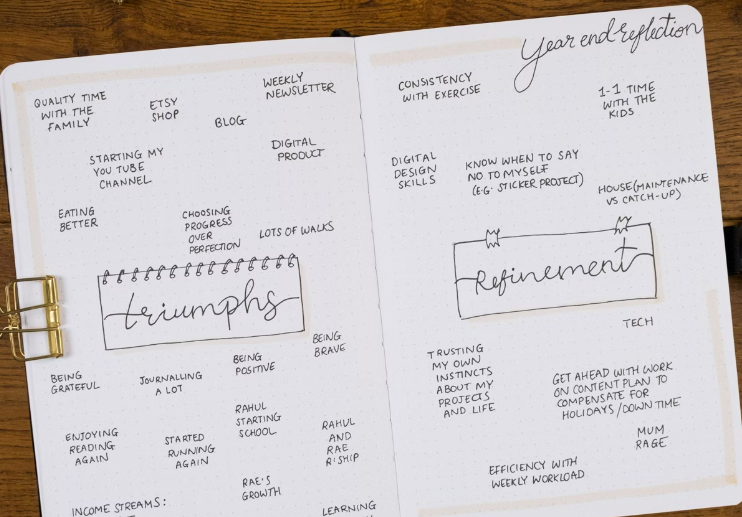 Year end reflection
QUALITY TIME
WITH THE
FAMILY
ETSY
SHOP
WEEKLY
NEWSLETTER
BLOG
STARTING MY
YOU TUBE
CHANNEL
DIGITAL
PRODUCT
EATING
BETTER
CHOOSING
PROGRESS
OVER
PERFECTION
LOTS OF WALKS
triumphs
BEING
GRATEFUL
JOURNALLING
A LOT
BEING
POSITIVE
BEING
BRAVE
ENJOYING
READING
AGAIN
STARTED
RUNNING
AGAIN
RAHUL
STARTING
SCHOOL
RAHUL
AND
RAE
R'SHIP
RAE'S
GROWTH
INCOME STREAMS:
LEARNING
CONSISTENCY
WITH EXERCISE
1-1 TIME
WITH THE
KIDS
DIGITAL
DESIGN
SKILLS
KNOW WHEN TO SAY
NO TO MYSELF
(E.G. STICKER PROJECT)
HOUSE (MAINTENANCE
VS CATCH-UP)
Refinement
TECH
TRUSTING
MY OWN
INSTINCTS
ABOUT MY
PROJECTS
AND LIFE
GET AHEAD WITH WORK
ON CONTENT PLAN TO
COMPENSATE FOR
HOLIDAYS / DOWN TIME
MUM
RAGE
EFFICIENCY WITH
WEEKLY WORKLOAD